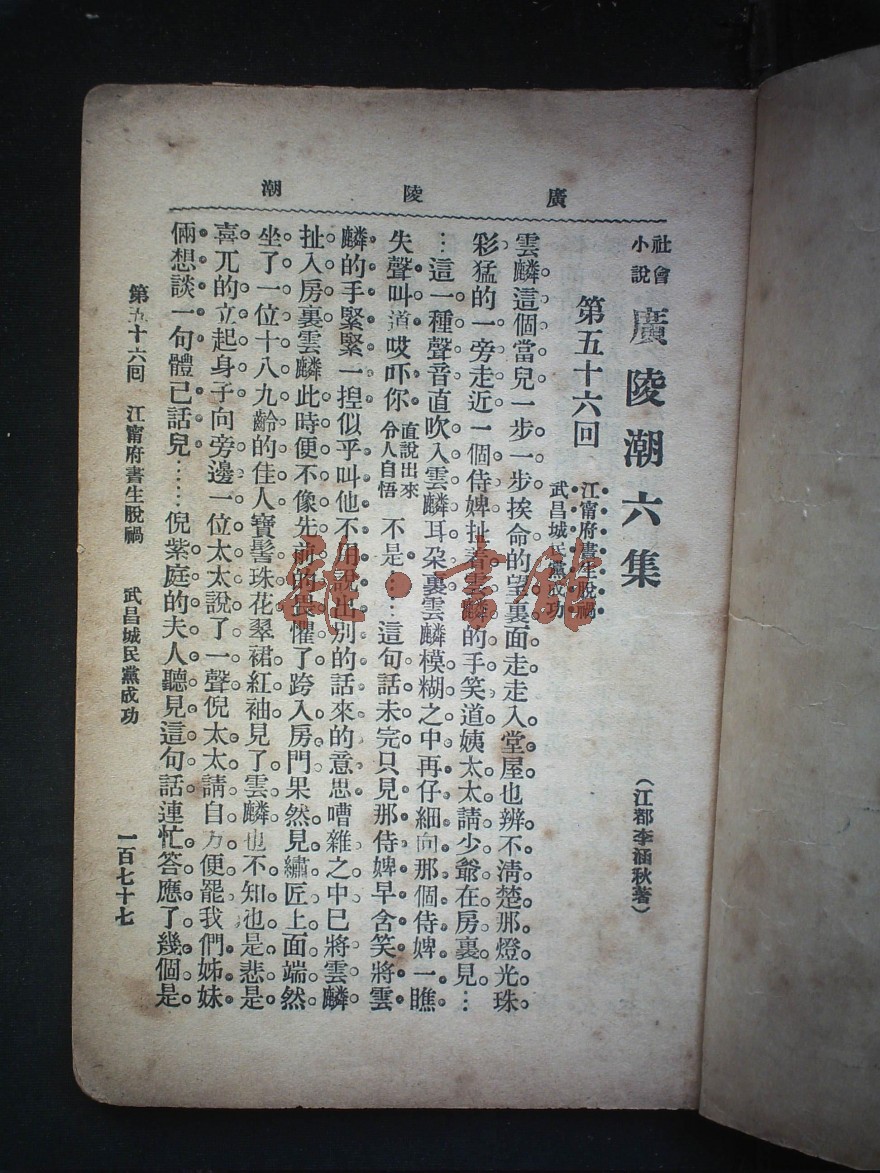 廣陵潮
社會小說 廣陵潮六集 （江都李涵秋著）
第五十六回
江甯府書生脫禍
武昌城民黨成功
雲麟這個當兒一步一步挨命的望裏面走走入堂屋也辨不清楚那燈光珠
彩猛的一旁走近一個侍婢扯着雲麟的手笑道姨太太請少爺在房裏見…
…這一種聲音直吹入雲麟耳朶裏雲麟模糊之中再仔細向那個侍婢一瞧
失聲叫道哎吓你直說出來令人自悟不是……這句話未完只見那侍婢早含笑將雲
麟的手緊緊一揑似乎叫他不用說出別的話來的意思嘈雜之中已將雲麟
扯入房裏雲麟此時便不像先前的畏懼了跨入房門果然見繡匠上面端然
坐了一位十八九齡的佳人寶髻珠花翠裙紅袖見了雲麟也不知也是悲是
喜兀的立起身子向旁邊一位太太說了一聲倪太太請自方便罷我們姊妹
倆想談一句體已話兒……倪紫庭的夫人聽見這句話連忙答應了幾個是
第五十六回 江甯府書生脫禍 武昌城民黨成功 一百七十七
雜·書館